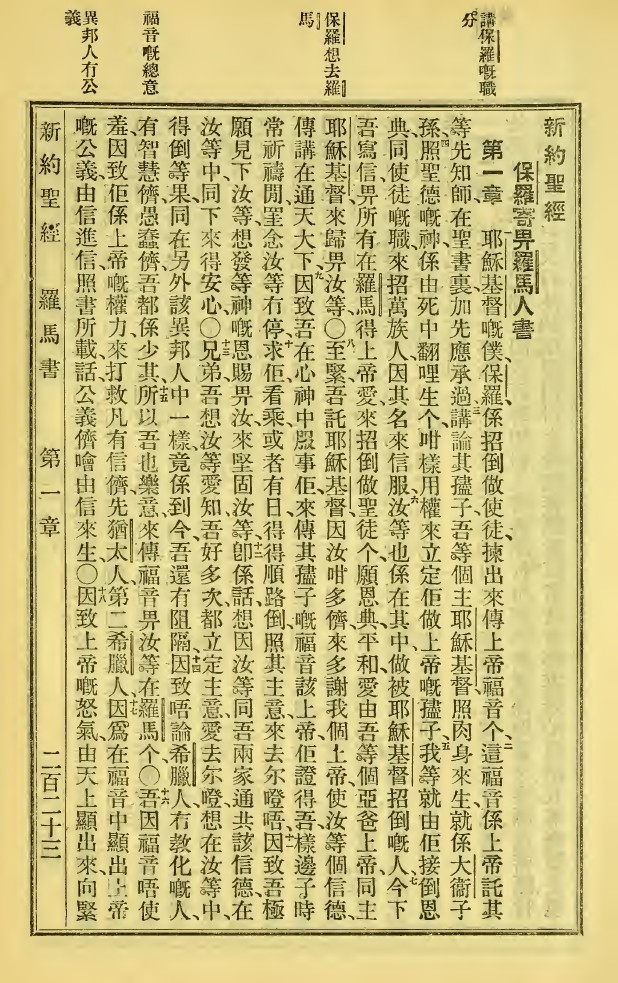 講保羅嘅職
分
保羅想去羅
馬
福音嘅總意
異邦人冇公
義
新約聖經
保羅寄畀羅馬人書
第一章 一耶穌基督嘅僕、保羅、係招倒做使徒、揀出來傳上帝福音个、二這福音係上帝託其
等先知師在聖書裏加先應承過、三講論其孻子吾等個主耶穌基督照肉身來生就係大衞子
孫、四照聖德嘅神係由死中翻哩生个咁樣用權來立定佢做上帝嘅孻子、五我等就由佢接倒恩
典同使徒嘅職來招萬族人因其名來信服、六汝等也係在其中、做被耶穌基督招倒嘅人、七今下
吾寫信畀所有在羅馬得上帝愛來招倒做聖徒个、願恩典、平和愛由吾等個亞爸上帝同主
耶穌基督來歸畀汝等、〇八至緊吾託耶穌基督、因汝咁多儕來多謝我個上帝、使汝等個信德、
傳講在通天大下、九因致吾在心神中服事佢來傳其孻子嘅福音該上帝佢證得吾樣邊子時
常祈禱閒罣念汝等冇停、十求佢看乘或者有日得得順路倒、照其主意來去尓嶝唔、十一因致吾極
願見下汝等想發等神嘅恩賜畀汝來堅固汝等、十二卽係話想因汝等同吾兩家通共該信德在
汝等中、同下來得安心、〇十三兄弟吾想汝等愛知吾好多次都立定主意愛去尓嶝想在汝等中、
得倒等果、同在另外該異邦人中一樣、竟係到今、吾還有阻隔、十四因致唔論希臘人、冇教化嘅人
有智慧儕、愚蠢儕、吾都係少其、十五所以吾也樂意來傳福音畀汝等在羅馬个、〇十六吾因福音唔使
羞、因致佢係上帝嘅權力來打救凡有信儕、先猶太人、第二希臘人、十七因爲在福音中顯出上帝
嘅公義由信進信、照書所載話公義儕噲由信來生、〇十八因致上帝嘅怒氣、由天上顯出來向緊
新約聖經 羅馬書 第一章 二百二十三